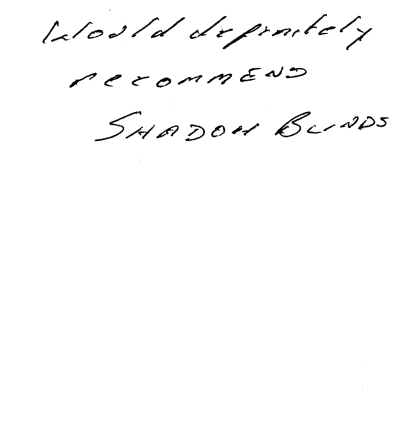 Would definitely
recommend
SHADOW BLINDS